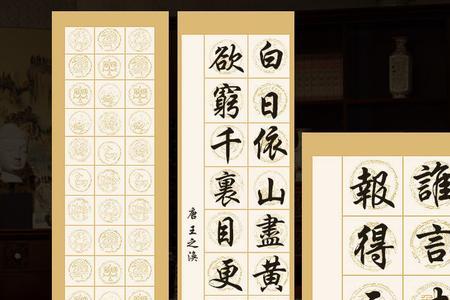 白日依山盡黃
欲窮千裏目更
唐王之渙
誰言
報得